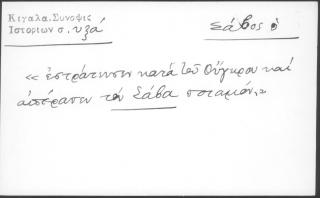 Κιγαλα.Σύνοψις
Ιστοριων σ. υξά
Σάβος ὁ
« ἐστράτευσεν κατά τοῦ Οὔγκρου καί
ἀπέρασεν τόν Σάβα ποταμόν,»